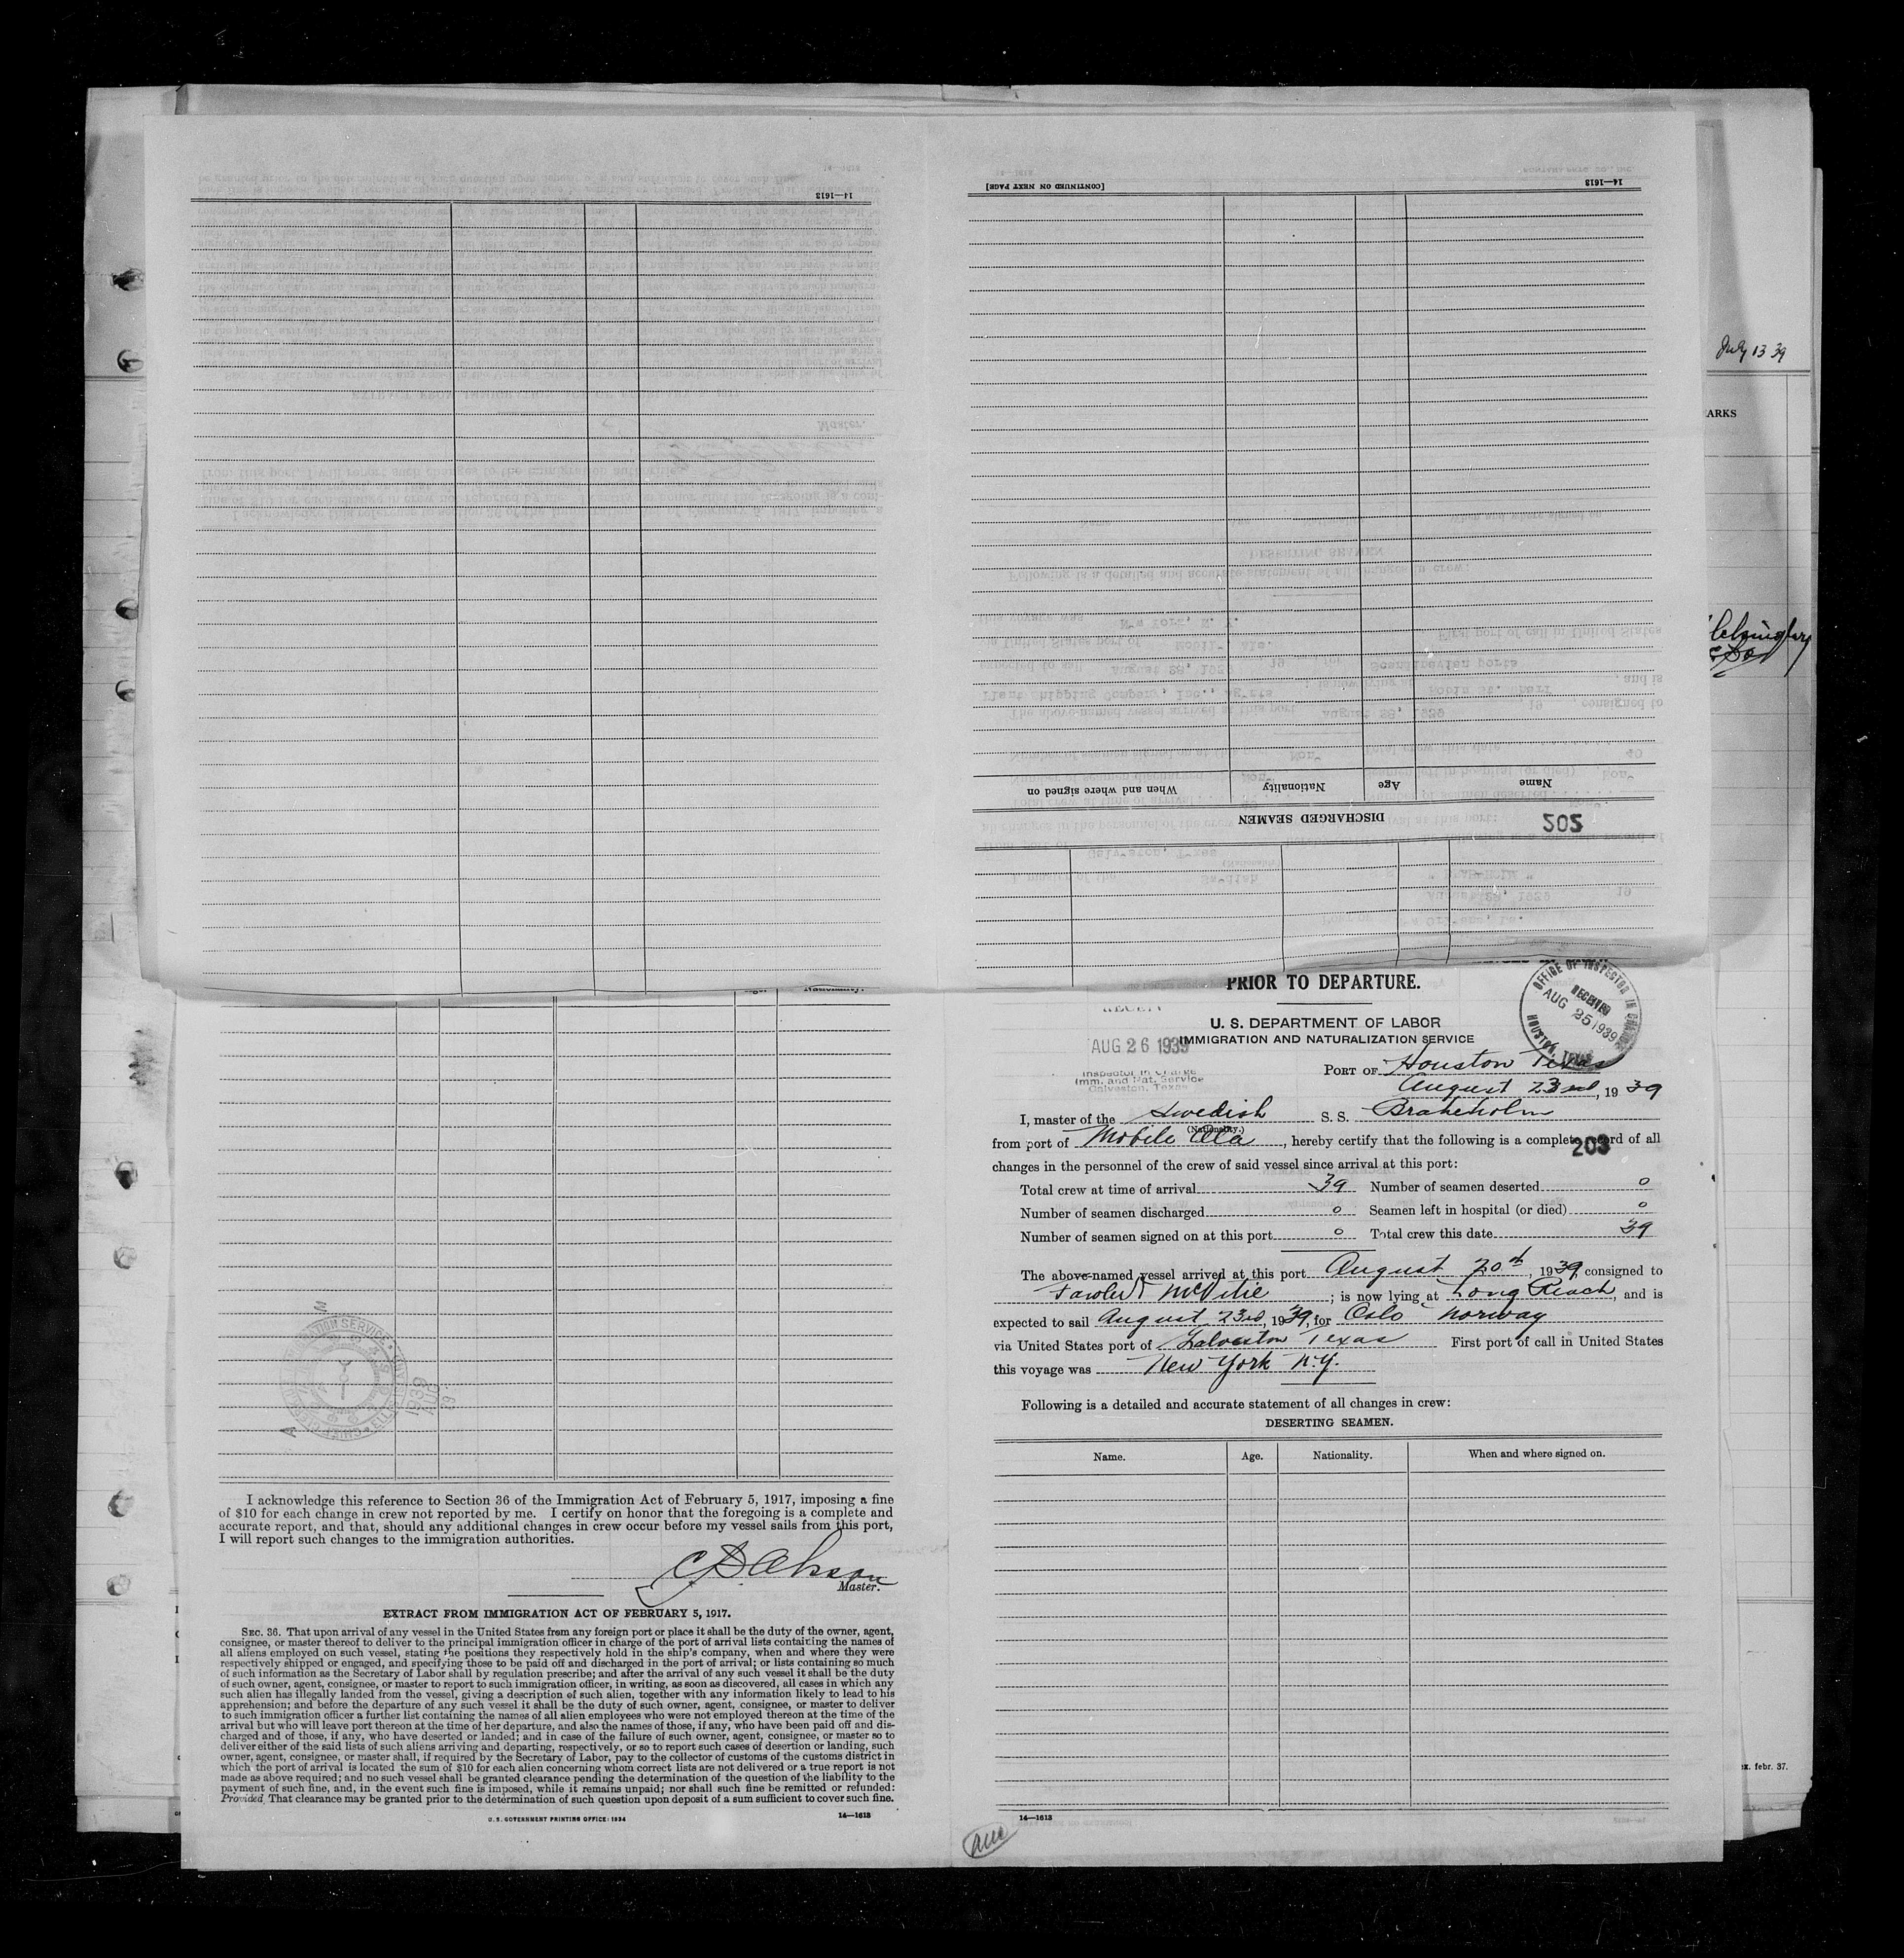 14—1613
[CONTINUED ON NEXT PAGE]
14—1613
Name
Age
Nationality
When and where signed on
DISCHARGED SEAMEN
202
July 13 39
ARKS
PRIOR TO DEPARTURE.
U. S. DEPARTMENT OF LABOR
IMMIGRATION AND NATURALIZATION SERVICE
OFFICE OF INSPECTOR IN CHARGE
RECEIVED
AUG 25 1939
HOUSTON, TEXAS
AUG 26 1939
Inspector in Charge
Imm. and Nat. Service
Galveston, Texas
PORT OF Houston Texas
August 23rd, 1939
I, master of the Swedish S. S. Braheholm
(Nationality.)
from port of Mobile Ala, hereby certify that the following is a complete record of all
203
changes in the personnel of the crew of said vessel since arrival at this port:
Total crew at time of arrival 39 Number of seamen deserted 0
Number of seamen discharged 0 Seamen left in hospital (or died) 0
Number of seamen signed on at this port 0 Total crew this date 39
The above-named vessel arrived at this port August 20th, 1939, consigned to
Fowler & McVitie; is now lying at Long Reach, and is
expected to sail August 23rd, 1939, for Oslo Norway
via United States port of Galveston Texas First port of call in United States
this voyage was New York N.Y.
Following is a detailed and accurate statement of all changes in crew:
DESERTING SEAMEN.
Name. Age. Nationality. When and where signed on.
14—1613
I acknowledge this reference to Section 36 of the Immigration Act of February 5, 1917, imposing a fine
of $10 for each change in crew not reported by me. I certify on honor that the foregoing is a complete and
accurate report, and that, should any additional changes in crew occur before my vessel sails from this port,
I will report such changes to the immigration authorities.
Master.
EXTRACT FROM IMMIGRATION ACT OF FEBRUARY 5, 1917.
SEC. 36. That upon arrival of any vessel in the United States from any foreign port or place it shall be the duty of the owner, agent,
consignee, or master thereof to deliver to the principal immigration officer in charge of the port of arrival lists containing the names of
all aliens employed on such vessel, stating the positions they respectively hold in the ship's company, when and where they were
respectively shipped or engaged, and specifying those to be paid off and discharged in the port of arrival; or lists containing so much
of such information as the Secretary of Labor shall by regulation prescribe; and after the arrival of any such vessel it shall be the duty
of such owner, agent, consignee, or master to report to such immigration officer, in writing, as soon as discovered, all cases in which any
such alien has illegally landed from the vessel, giving a description of such alien, together with any information likely to lead to his
apprehension; and before the departure of any such vessel it shall be the duty of such owner, agent, consignee, or master to deliver
to such immigration officer a further list containing the names of all alien employees who were not employed thereon at the time of the
arrival but who will leave port thereon at the time of her departure, and also the names of those, if any, who have been paid off and dis-
charged and of those, if any, who have deserted or landed; and in case of the failure of such owner, agent, consignee, or master so to
deliver either of the said lists of such aliens arriving and departing, respectively, or so to report such cases of desertion or landing, such
owner, agent, consignee, or master shall, if required by the Secretary of Labor, pay to the collector of customs of the customs district in
which the port of arrival is located the sum of $10 for each alien concerning whom correct lists are not delivered or a true report is not
made as above required; and no such vessel shall be granted clearance pending the determination of the question of the liability to the
payment of such fine, and, in the event such fine is imposed, while it remains unpaid; nor shall such fine be remitted or refunded:
Provided, That clearance may be granted prior to the determination of such question upon deposit of a sum sufficient to cover such fine.
U. S. GOVERNMENT PRINTING OFFICE: 1934
14—1613
febr. 37.